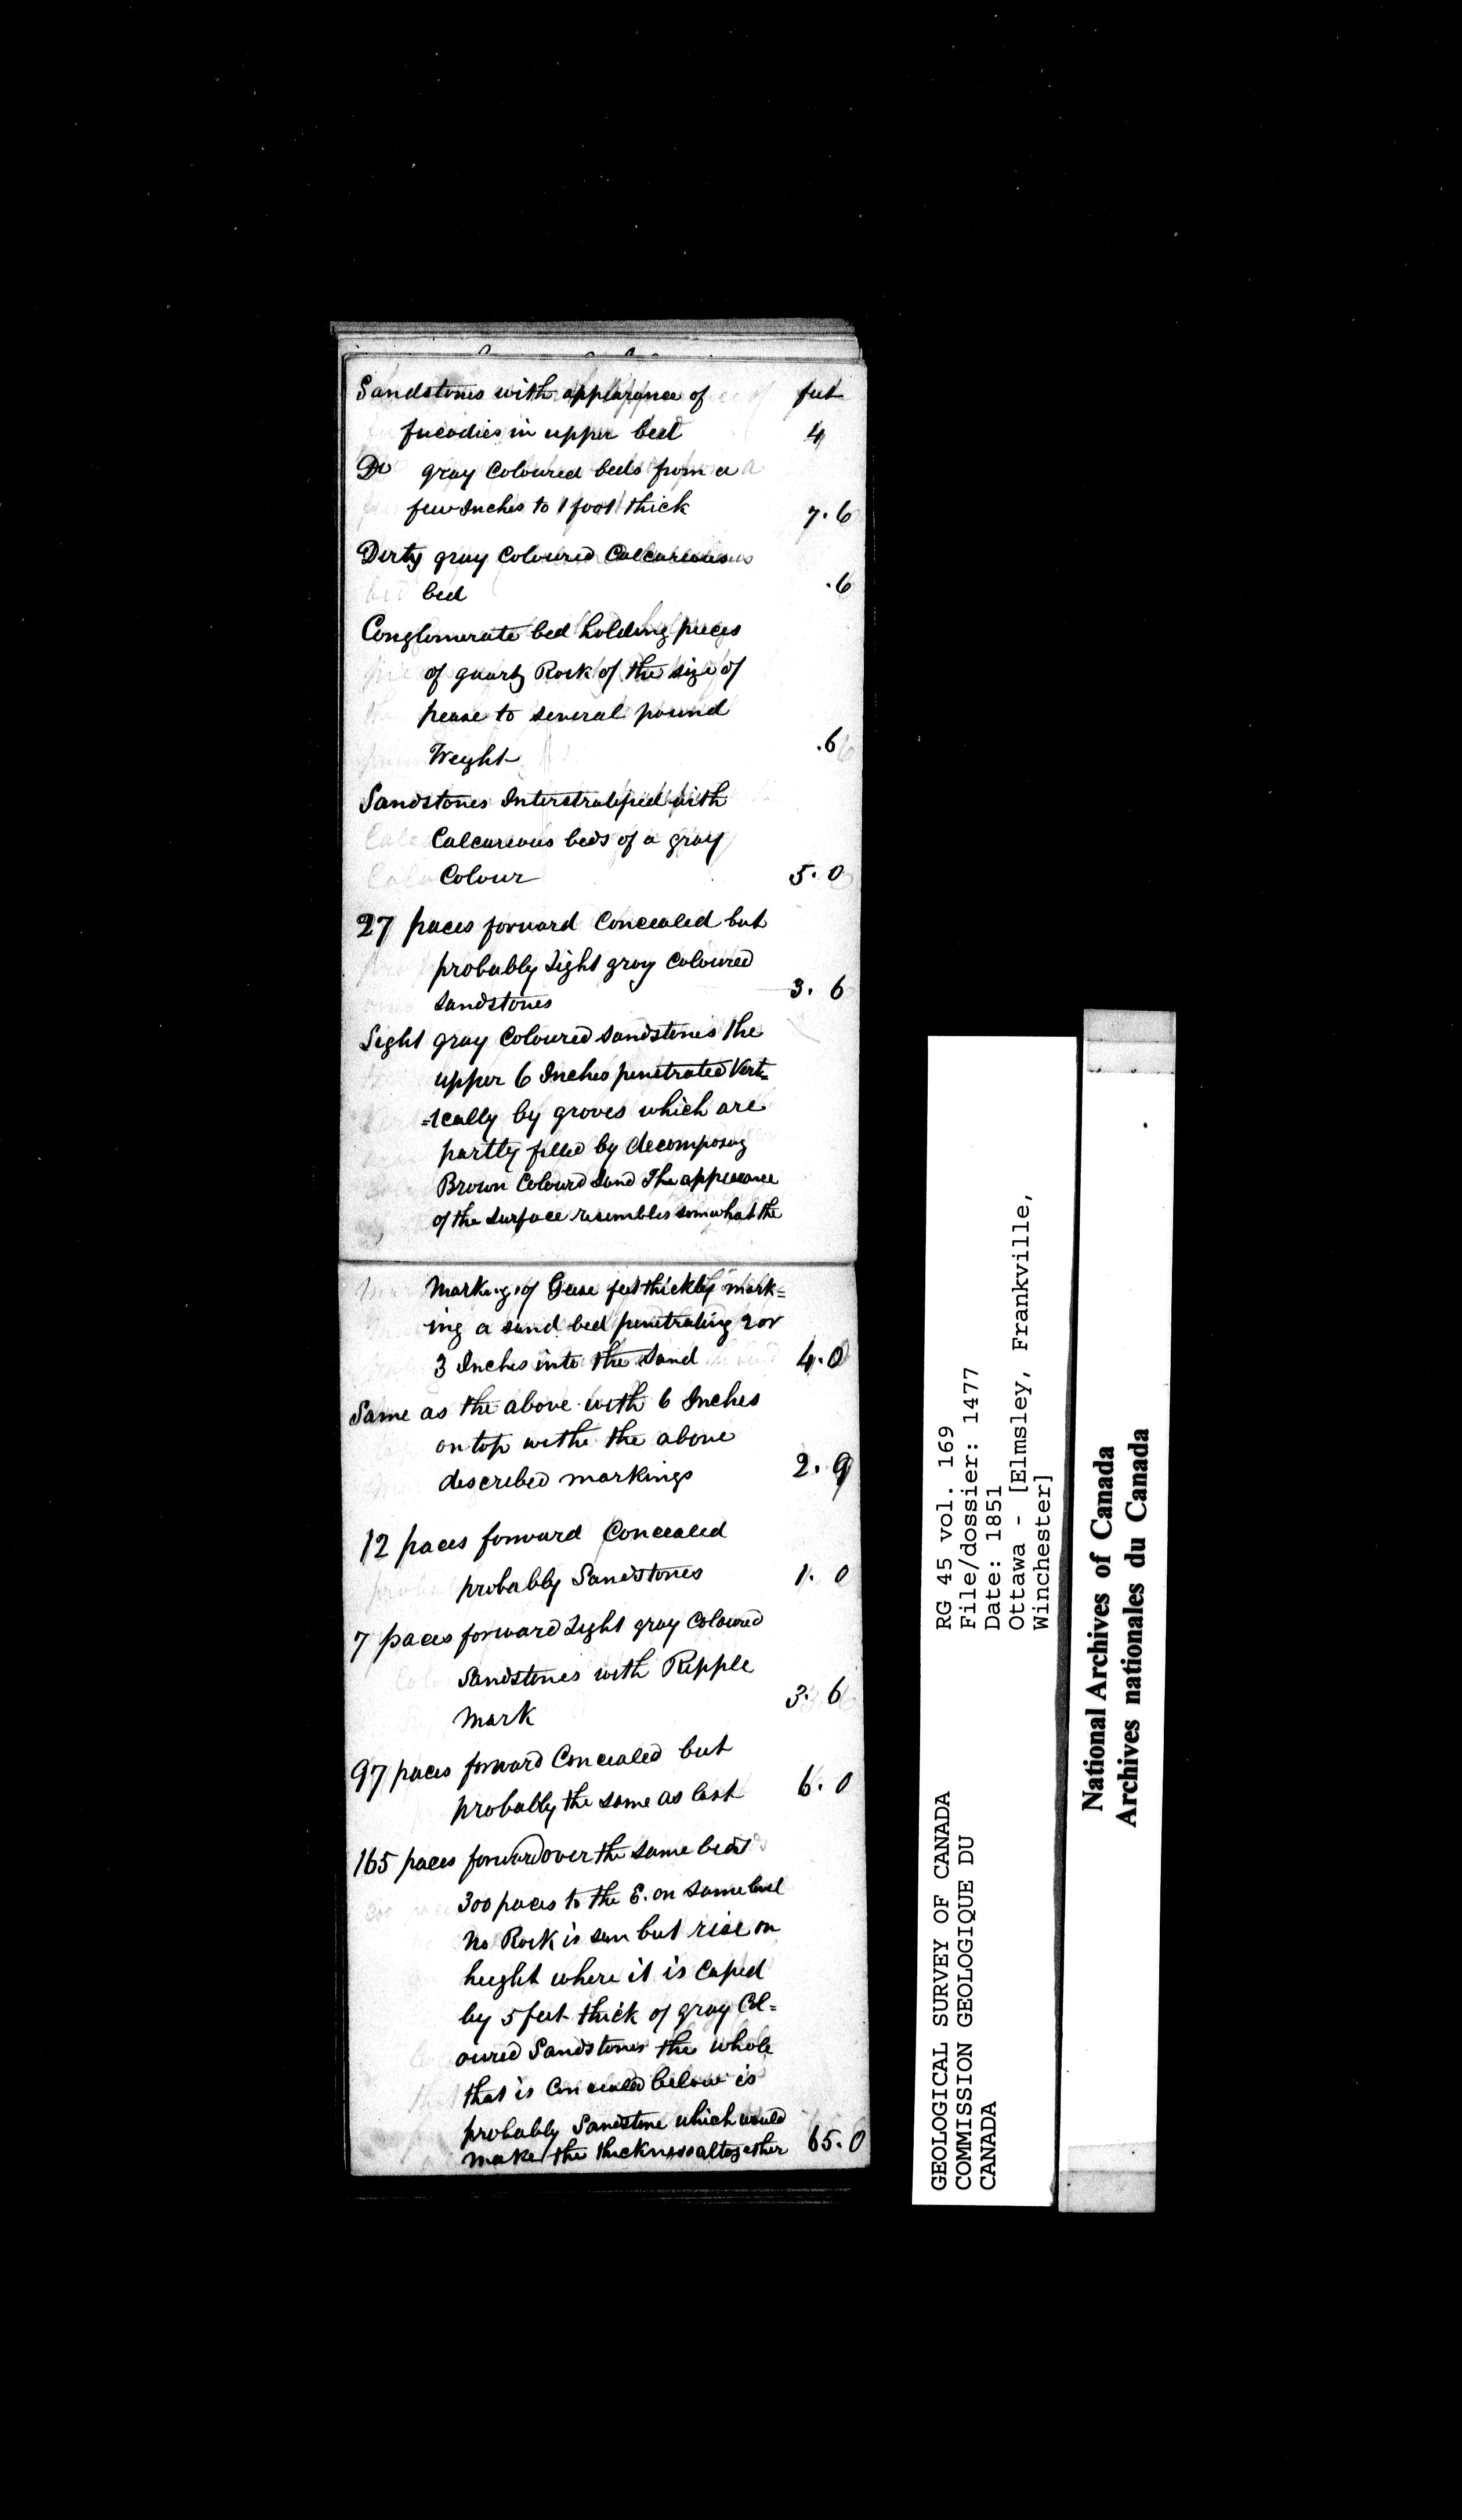 Sandstones with appearance of feet
fucodies in upper bed 4
Do gray Coloured beds from a
few Inches to 1 foot thick 7.6
Dirty gray Coloured Calcareous
bed .6
Conglomerate bed holding pieces
of quartz Rock of the size of
pease to several pound
Weght .6
Sandstones Interstratified with
Calcareous beds of a gray
Colour 5.0
27 paces forward Concealed but
probably Light gray Coloured
Sandstones 3.6
Light gray Coloured Sandstones the
upper 6 Inches penetrated Vert=
=ically by groves which are
partly filled by decomposing
Brown Colourd Sand The appearance
of the Surface resembles somwhat the
Marking of Geese feet thickly mark=
ing a sand bed penetrating 2 or
3 Inches into the Sand 4.0
Same as the above with 6 Inches
on top withe the above
described markings 2.9
12 paces forward Concealed
probably Sandstones 1.0
7 paces forward Light gray Coloured
Sandstones with Ripple
Mark 3.6
97 paces forward Concealed but
probably the same as last 6.0
165 paces forward over the same beds
300 paces to the E. on same level
No Rock is seen but rise on
height where it is Caped
by 5 feet thick of gray Col=
oured Sandstones the whole
that is Concealed below is
probably Sandstone which would
make the thickness altogether 65.0
GEOLOGICAL SURVEY OF CANADA
COMMISSION GEOLOGIQUE DU
CANADA
RG 45 vol. 169
File/dossier: 1477
Date: 1851
Ottawa - [Elmsley, Frankville,
Winchester]
National Archives of Canada
Archives nationales du Canada